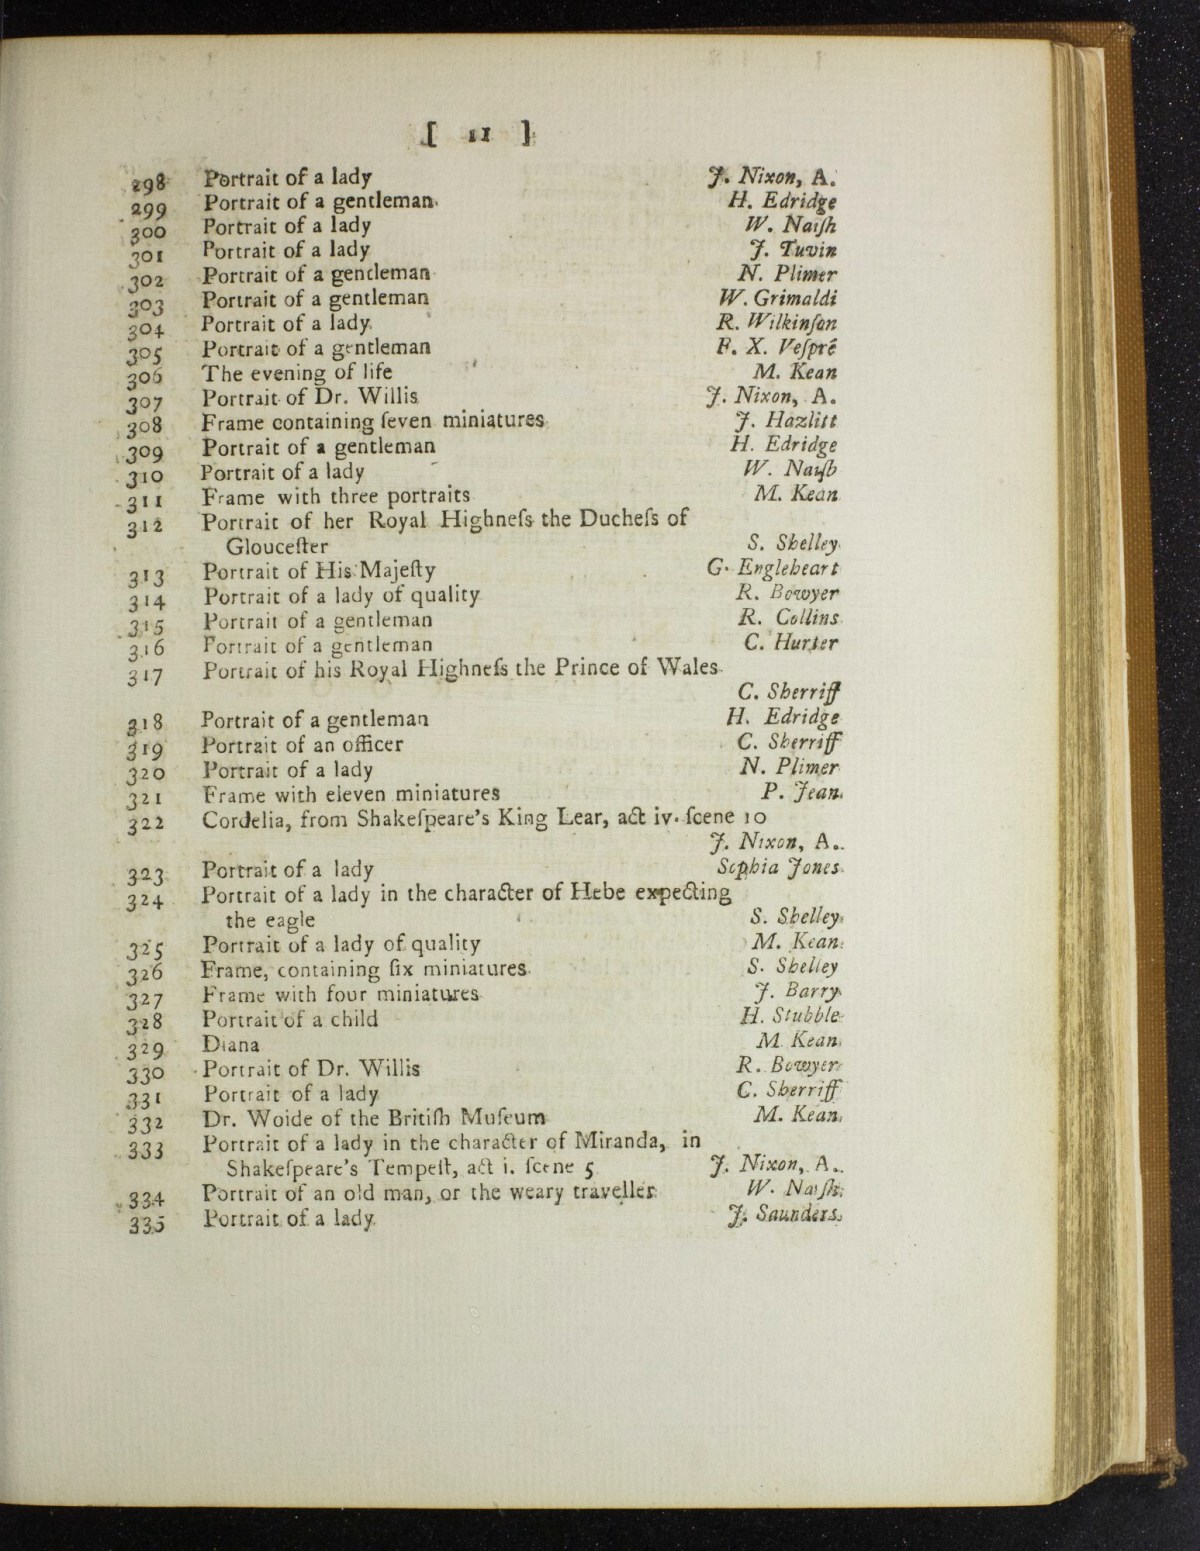 [ 11 ]
298 Portrait of a lady J. Nixon, A.
299 Portrait of a gentleman H. Edridge
300 Portrait of a lady W. Naiſh
301 Portrait of a lady J. Tuvin
302 Portrait of a gentleman N. Plimer
303 Portrait of a gentleman W. Grimaldi
304 Portrait of a lady R. Wilkinſon
305 Portrait of a gentleman F. X. Veſprê
306 The evening of life M. Kean
307 Portrait of Dr. Willis J. Nixon, A.
308 Frame containing ſeven miniatures J. Hazlitt
309 Portrait of a gentleman H. Edridge
310 Portrait of a lady W. Naiſh
311 Frame with three portraits M. Kean
312 Portrait of her Royal Highneſs the Ducheſs of
Glouceſter S. Shelley
313 Portrait of His Majeſty G. Engleheart
314 Portrait of a lady of quality R. Bowyer
315 Portrait of a gentleman R. Collins
316 Portrait of a gentleman C. Hurter
317 Portrait of his Royal Highneſs the Prince of Wales
C. Sherriff
318 Portrait of a gentleman H. Edridge
319 Portrait of an officer C. Sherriff
320 Portrait of a lady N. Plimer
321 Frame with eleven miniatures P. Jean
322 Cordelia, from Shakeſpeare's King Lear, act iv. ſcene 10
J. Nixon, A.
323 Portrait of a lady Sophia Jones
324 Portrait of a lady in the character of Hebe expecting
the eagle S. Shelley
325 Portrait of a lady of quality M. Kean
326 Frame, containing ſix miniatures S. Shelley
327 Frame with four miniatures J. Barry
328 Portrait of a child H. Stubble
329 Diana M. Kean
330 Portrait of Dr. Willis R. Bowyer
331 Portrait of a lady C. Sherriff
332 Dr. Woide of the Britiſh Muſeum M. Kean
333 Portrait of a lady in the character of Miranda, in
Shakeſpeare's Tempeſt, act i. ſcene 5 J. Nixon, A.
334 Portrait of an old man, or the weary traveller W. Naiſh
335 Portrait of a lady J. Saunders